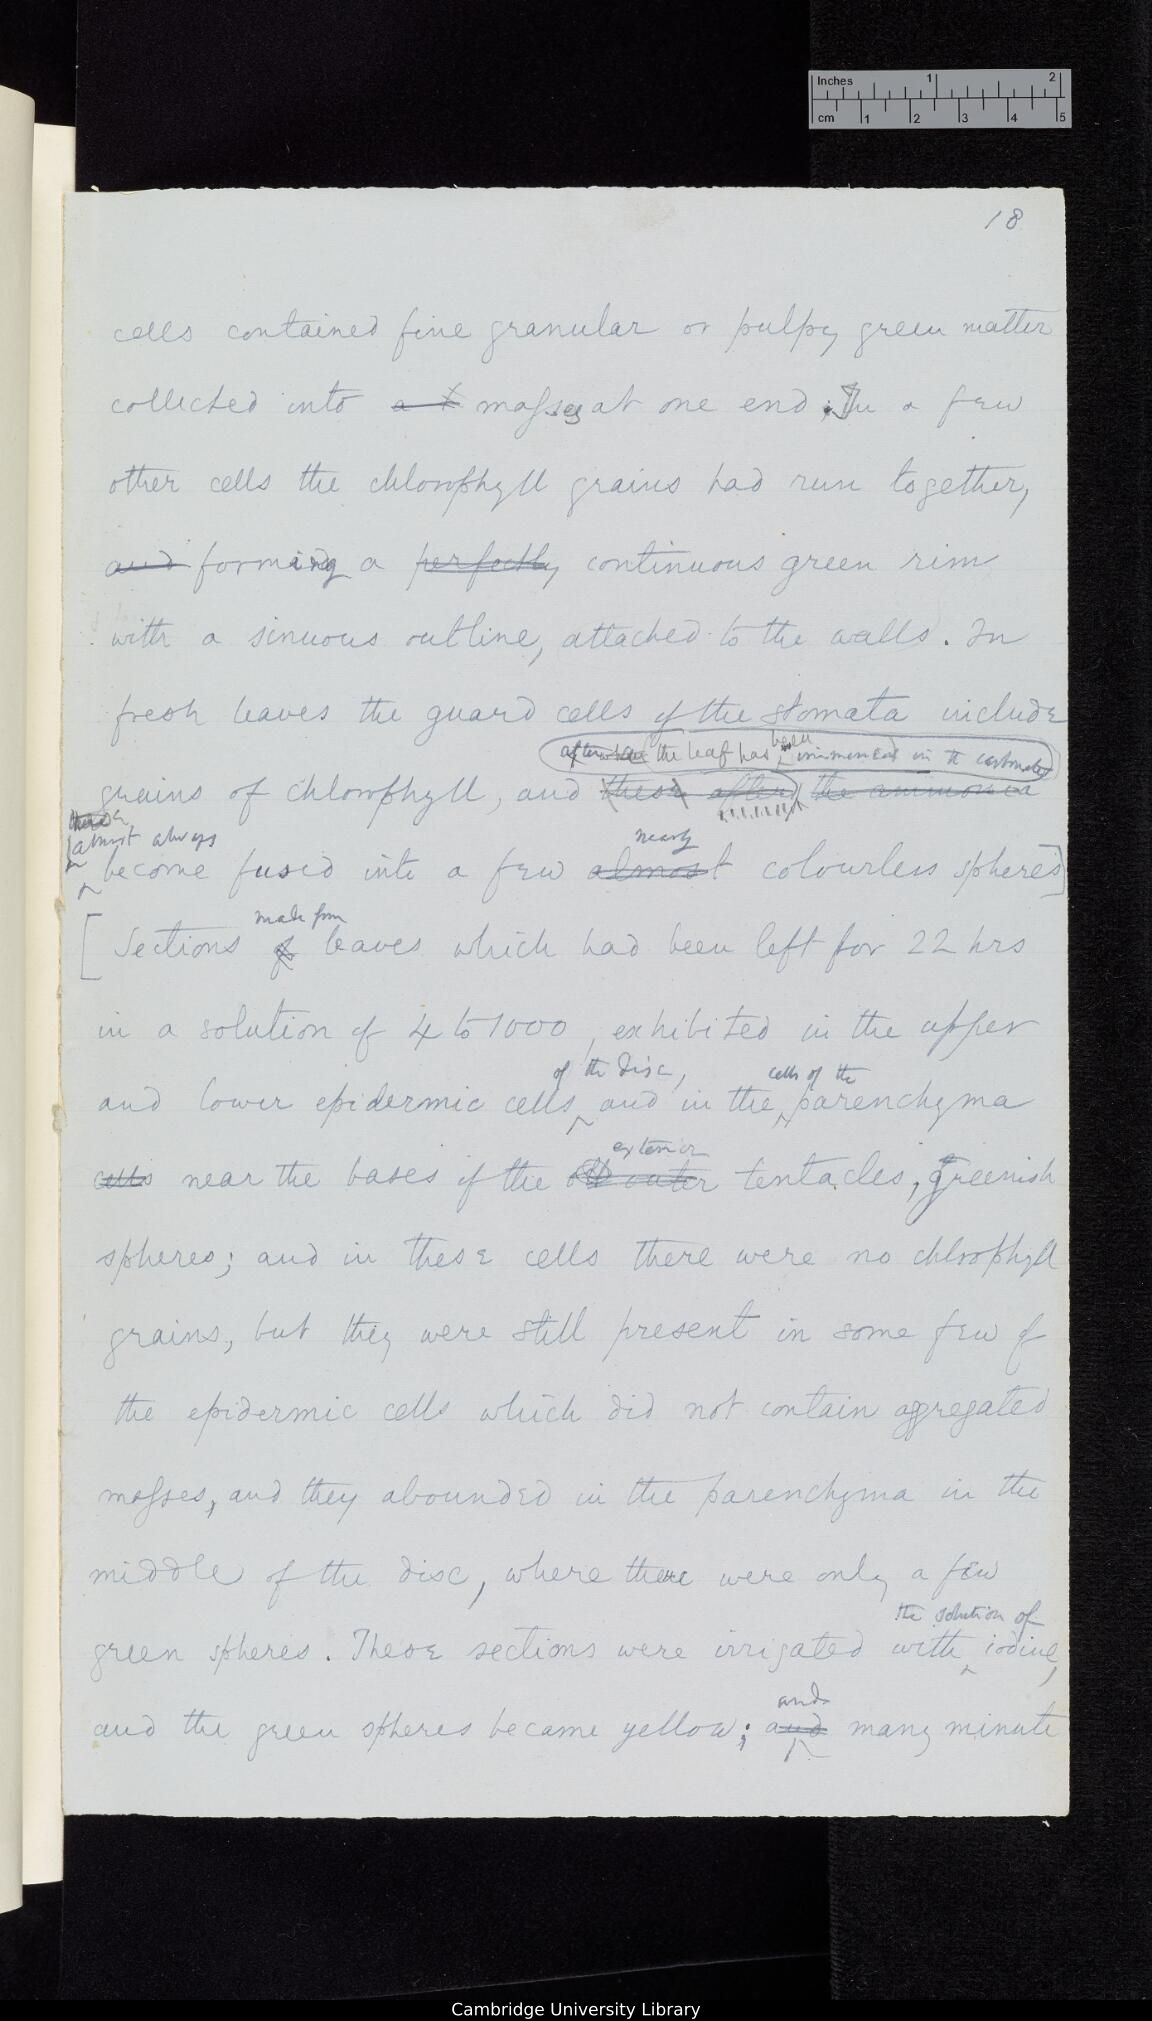 Inches 1 2
cm 1 2 3 4 5
18
cells contained fine granular or pulpy green matter
collected into a masses at one end. In a few
other cells the chlorophyll grains had run together,
and forming a perfectly continuous green rim
with a sinuous outline, attached to the walls. In
fresh leaves the guard cells of the stomata include
after the leaf has been immersed in the carbonate
grains of chlorophyll, and these after the ammonia
these
almost always
nearly
become fused into a few almost colourless spheres]
made from
[Sections of leaves which had been left for 22 hrs
in a solution of 4 to 1000, exhibited in the upper
of the disc, cells of the
and lower epidermic cells, and in the parenchyma
exterior
cells near the bases of the outer tentacles, greenish
spheres; and in these cells there were no chlorophyll
grains, but they were still present in some few of
the epidermic cells which did not contain aggregated
masses, and they abounded in the parenchyma in the
middle of the disc, where there were only a few
the solution of
green spheres. These sections were irrigated with iodine,
and
and the green spheres became yellow; and many minute
Cambridge University Library